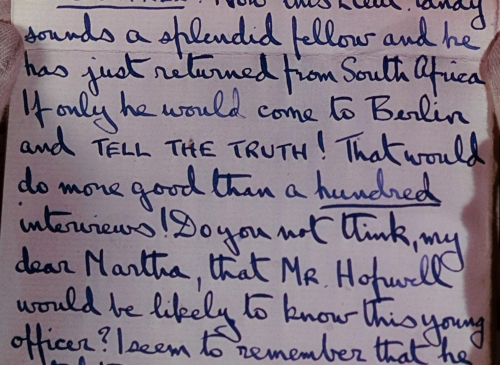 Now this Lieut. Candy
sounds a splendid fellow and he
has just returned from South Africa
If only he would come to Berlin
and TELL THE TRUTH! That would
do more good than a hundred
interviews! Do you not think, my
dear Martha, that MR. Hopwell
would be likely to know this young
officer? I seem to remember that he